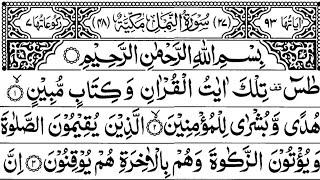 اٰیَاتُهَا ۹۳ (۲۷) سُوْرَةُ النَّمْلِ مَكِّیَّةٌ (۴۸) رُكُوْعَاتُهَا ۷
بِسْمِ اللّٰهِ الرَّحْمٰنِ الرَّحِیْمِ
طٰسٓ ۫ تِلْكَ اٰیٰتُ الْقُرْاٰنِ وَ كِتَابٍ مُّبِیْنٍ ۙ﴿۱﴾
هُدًی وَّ بُشْرٰی لِلْمُؤْمِنِیْنَ ۙ﴿۲﴾ الَّذِیْنَ یُقِیْمُوْنَ الصَّلٰوةَ
وَ یُؤْتُوْنَ الزَّكٰوةَ وَ هُمْ بِالْاٰخِرَةِ هُمْ یُوْقِنُوْنَ ﴿۳﴾ اِنَّ